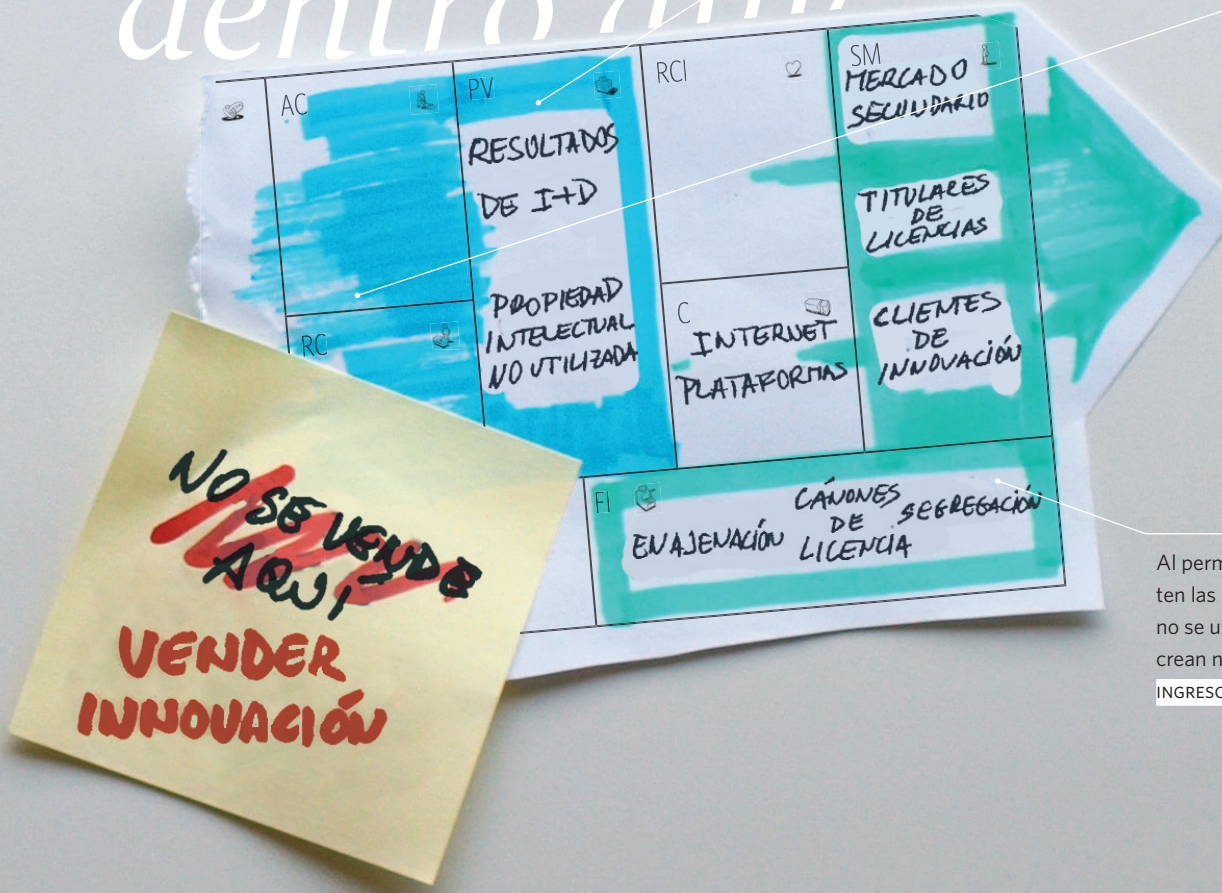 dentro
AC
PV
RESULTADOS
DE I+D
PROPIEDAD
INTELECTUAL
NO UTILIZADA
RCI
SM
MERCADO
SECUNDARIO
TITULARES
DE
LICENCIAS
CLIENTES
DE
INNOVACIÓN
RC
C
INTERNET
PLATAFORMAS
FI
ENAJENACIÓN
CÁNONES
DE
LICENCIA
SEGREGACIÓN
NO SE VENDE
AQUÍ
VENDER
INNOVACIÓN
Al perm
ten las
no se u
crean n
INGRESO